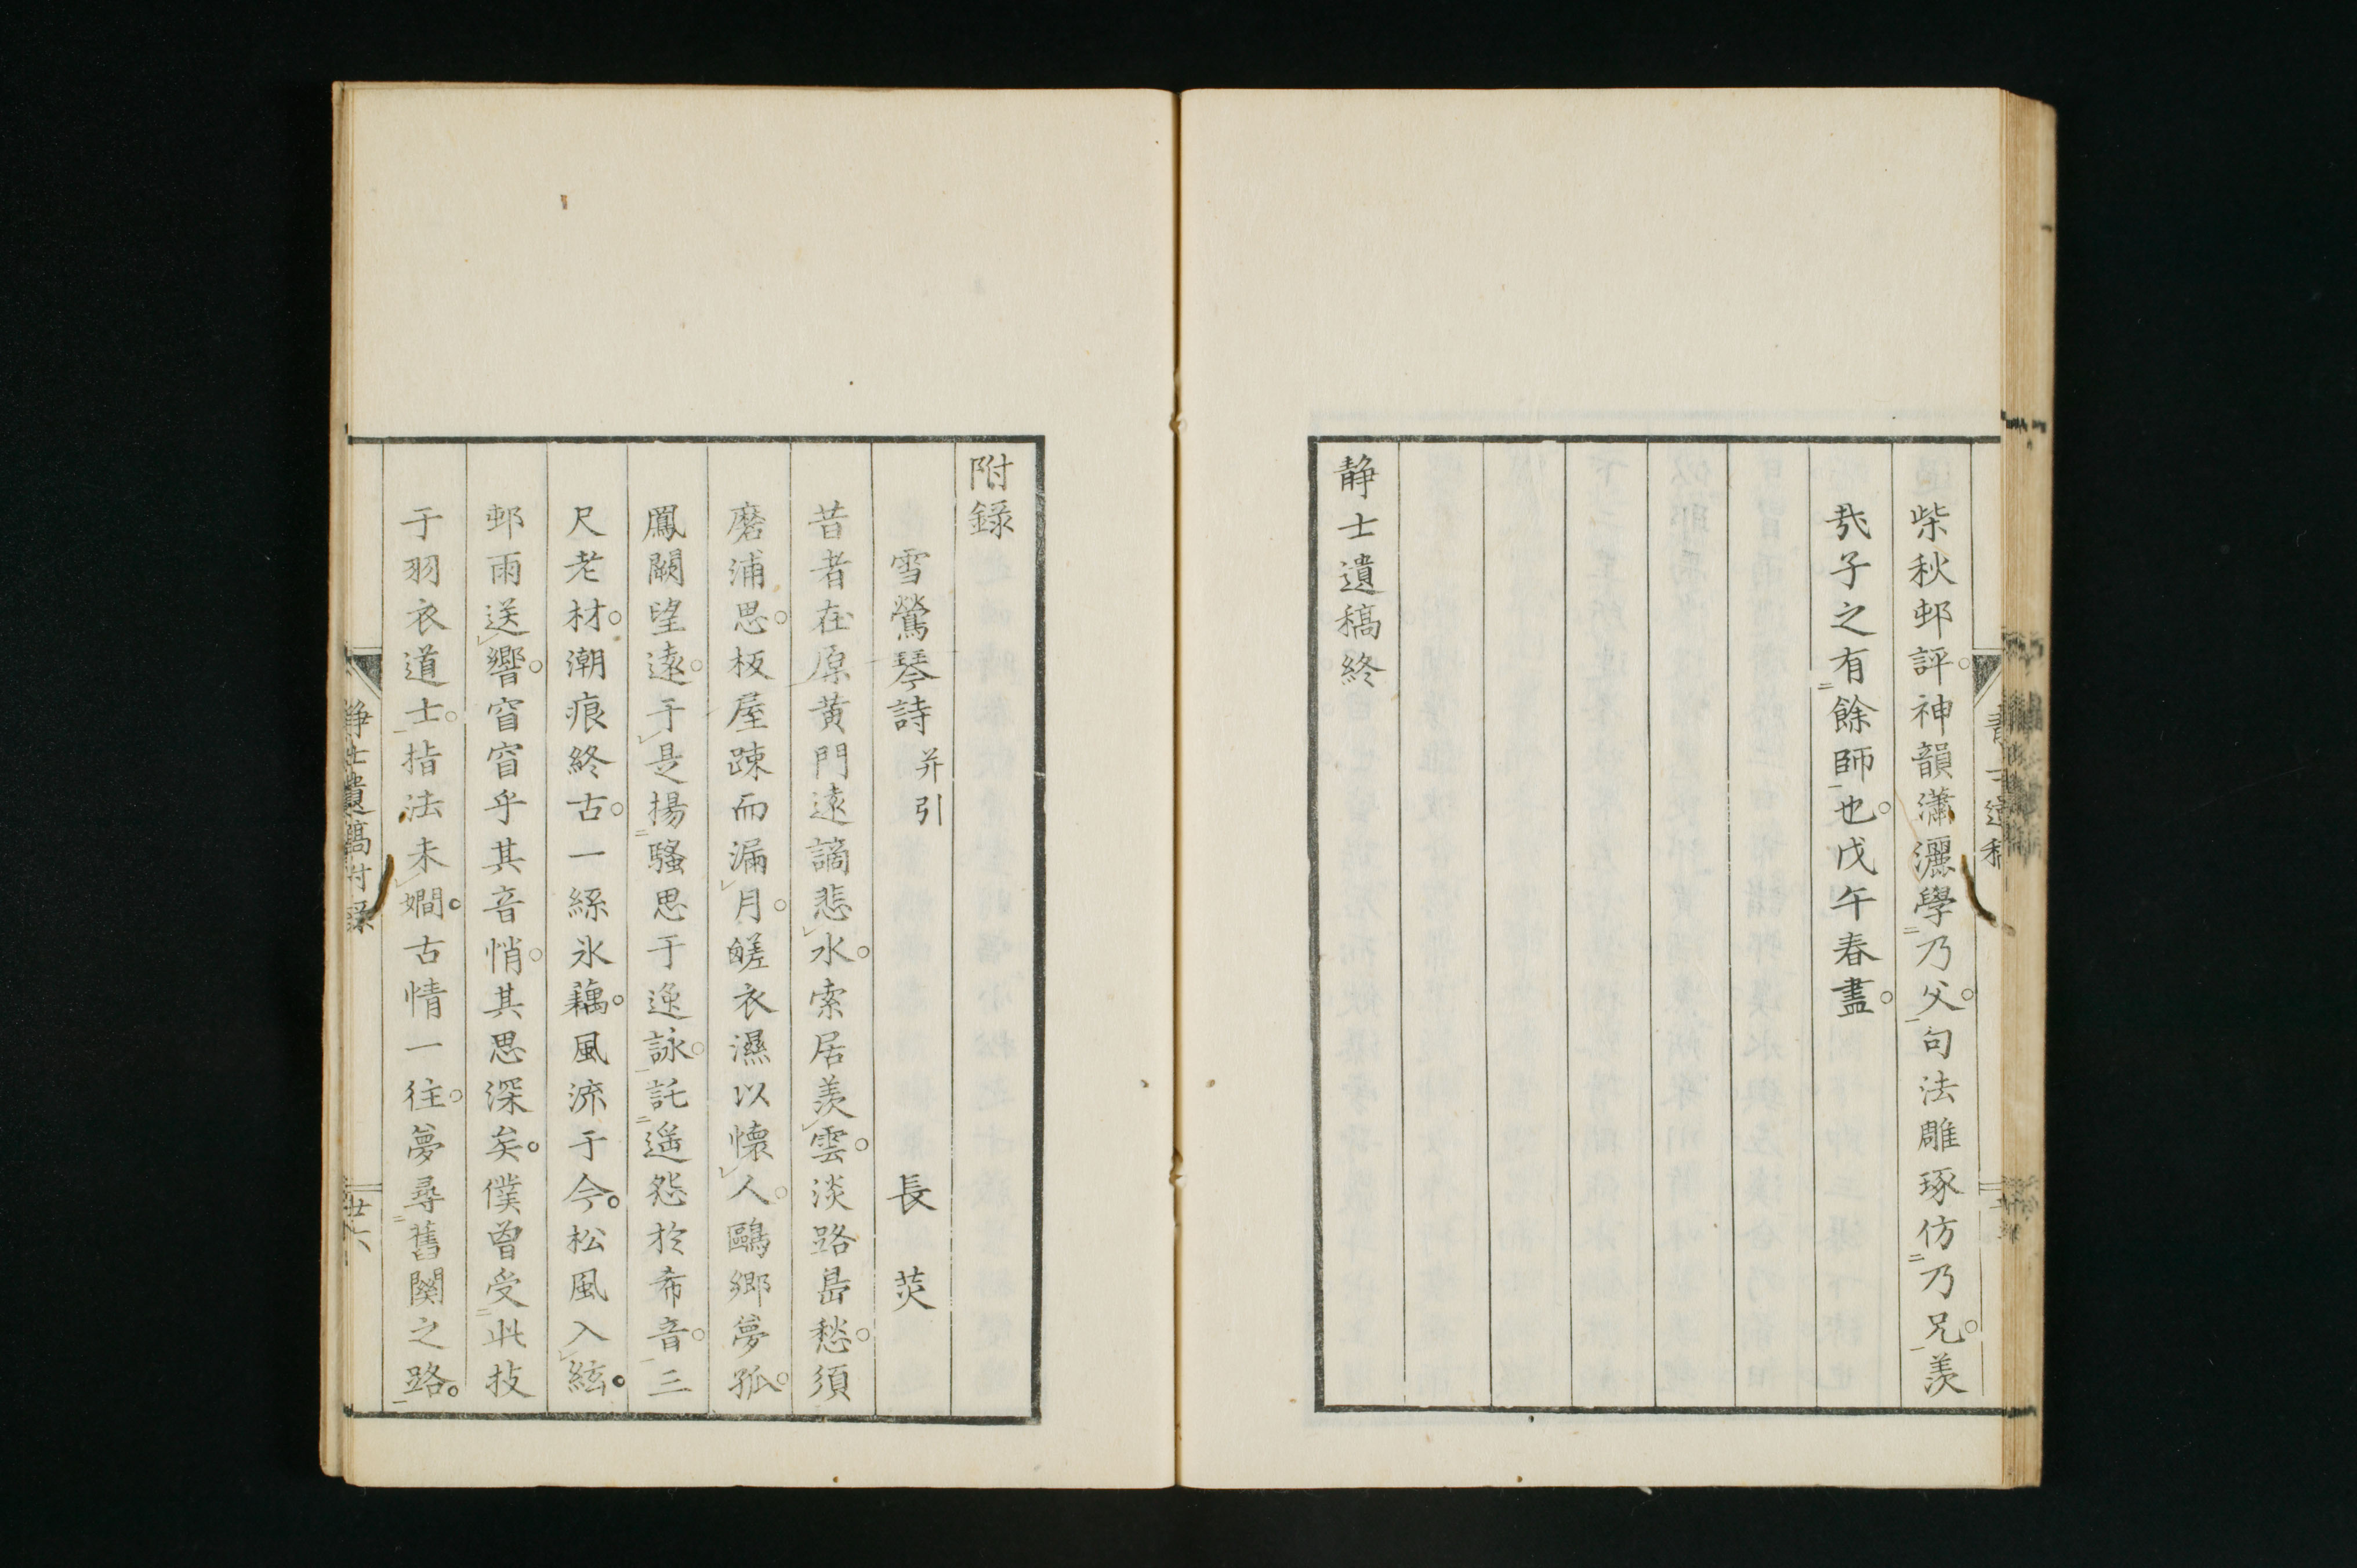 柴秋邨評。神韻瀟灑學乃父。句法雕琢仿乃兄。羨
哉子之有餘師也。戊午春盡。
静士遺稿終
附録
雪鶯琴詩 并引
長 炗
昔者在原黄門遠謫悲水。索居羨雲。淡路島愁。須
磨浦思。板屋踈而漏月。鹺衣濕以懐人。鷗郷夢孤。
鳳闕望遠。于是揚騷思于逸詠。託遥怨於希音。三
尺老材。潮痕終古。一絲氷藕。風流于今。松風入絃。
邨雨送響。窅窅乎其音悄。其思深矣。僕曽受此技
于羽衣道士。指法未嫺。古情一往。夢尋舊関之路。
静士遺稿附録
廿六